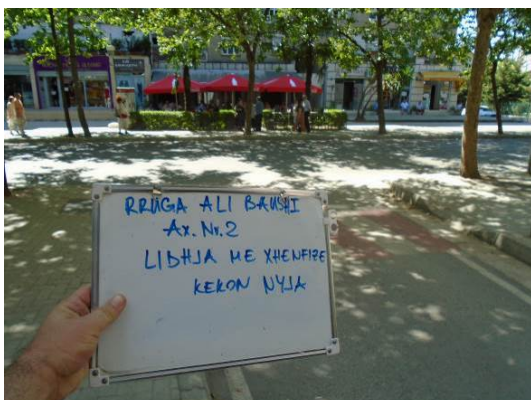 RRUGA ALI BAUSHI
Ax. Nr. 2
LIDHJA ME XHENFIZE
KEKON NYJA